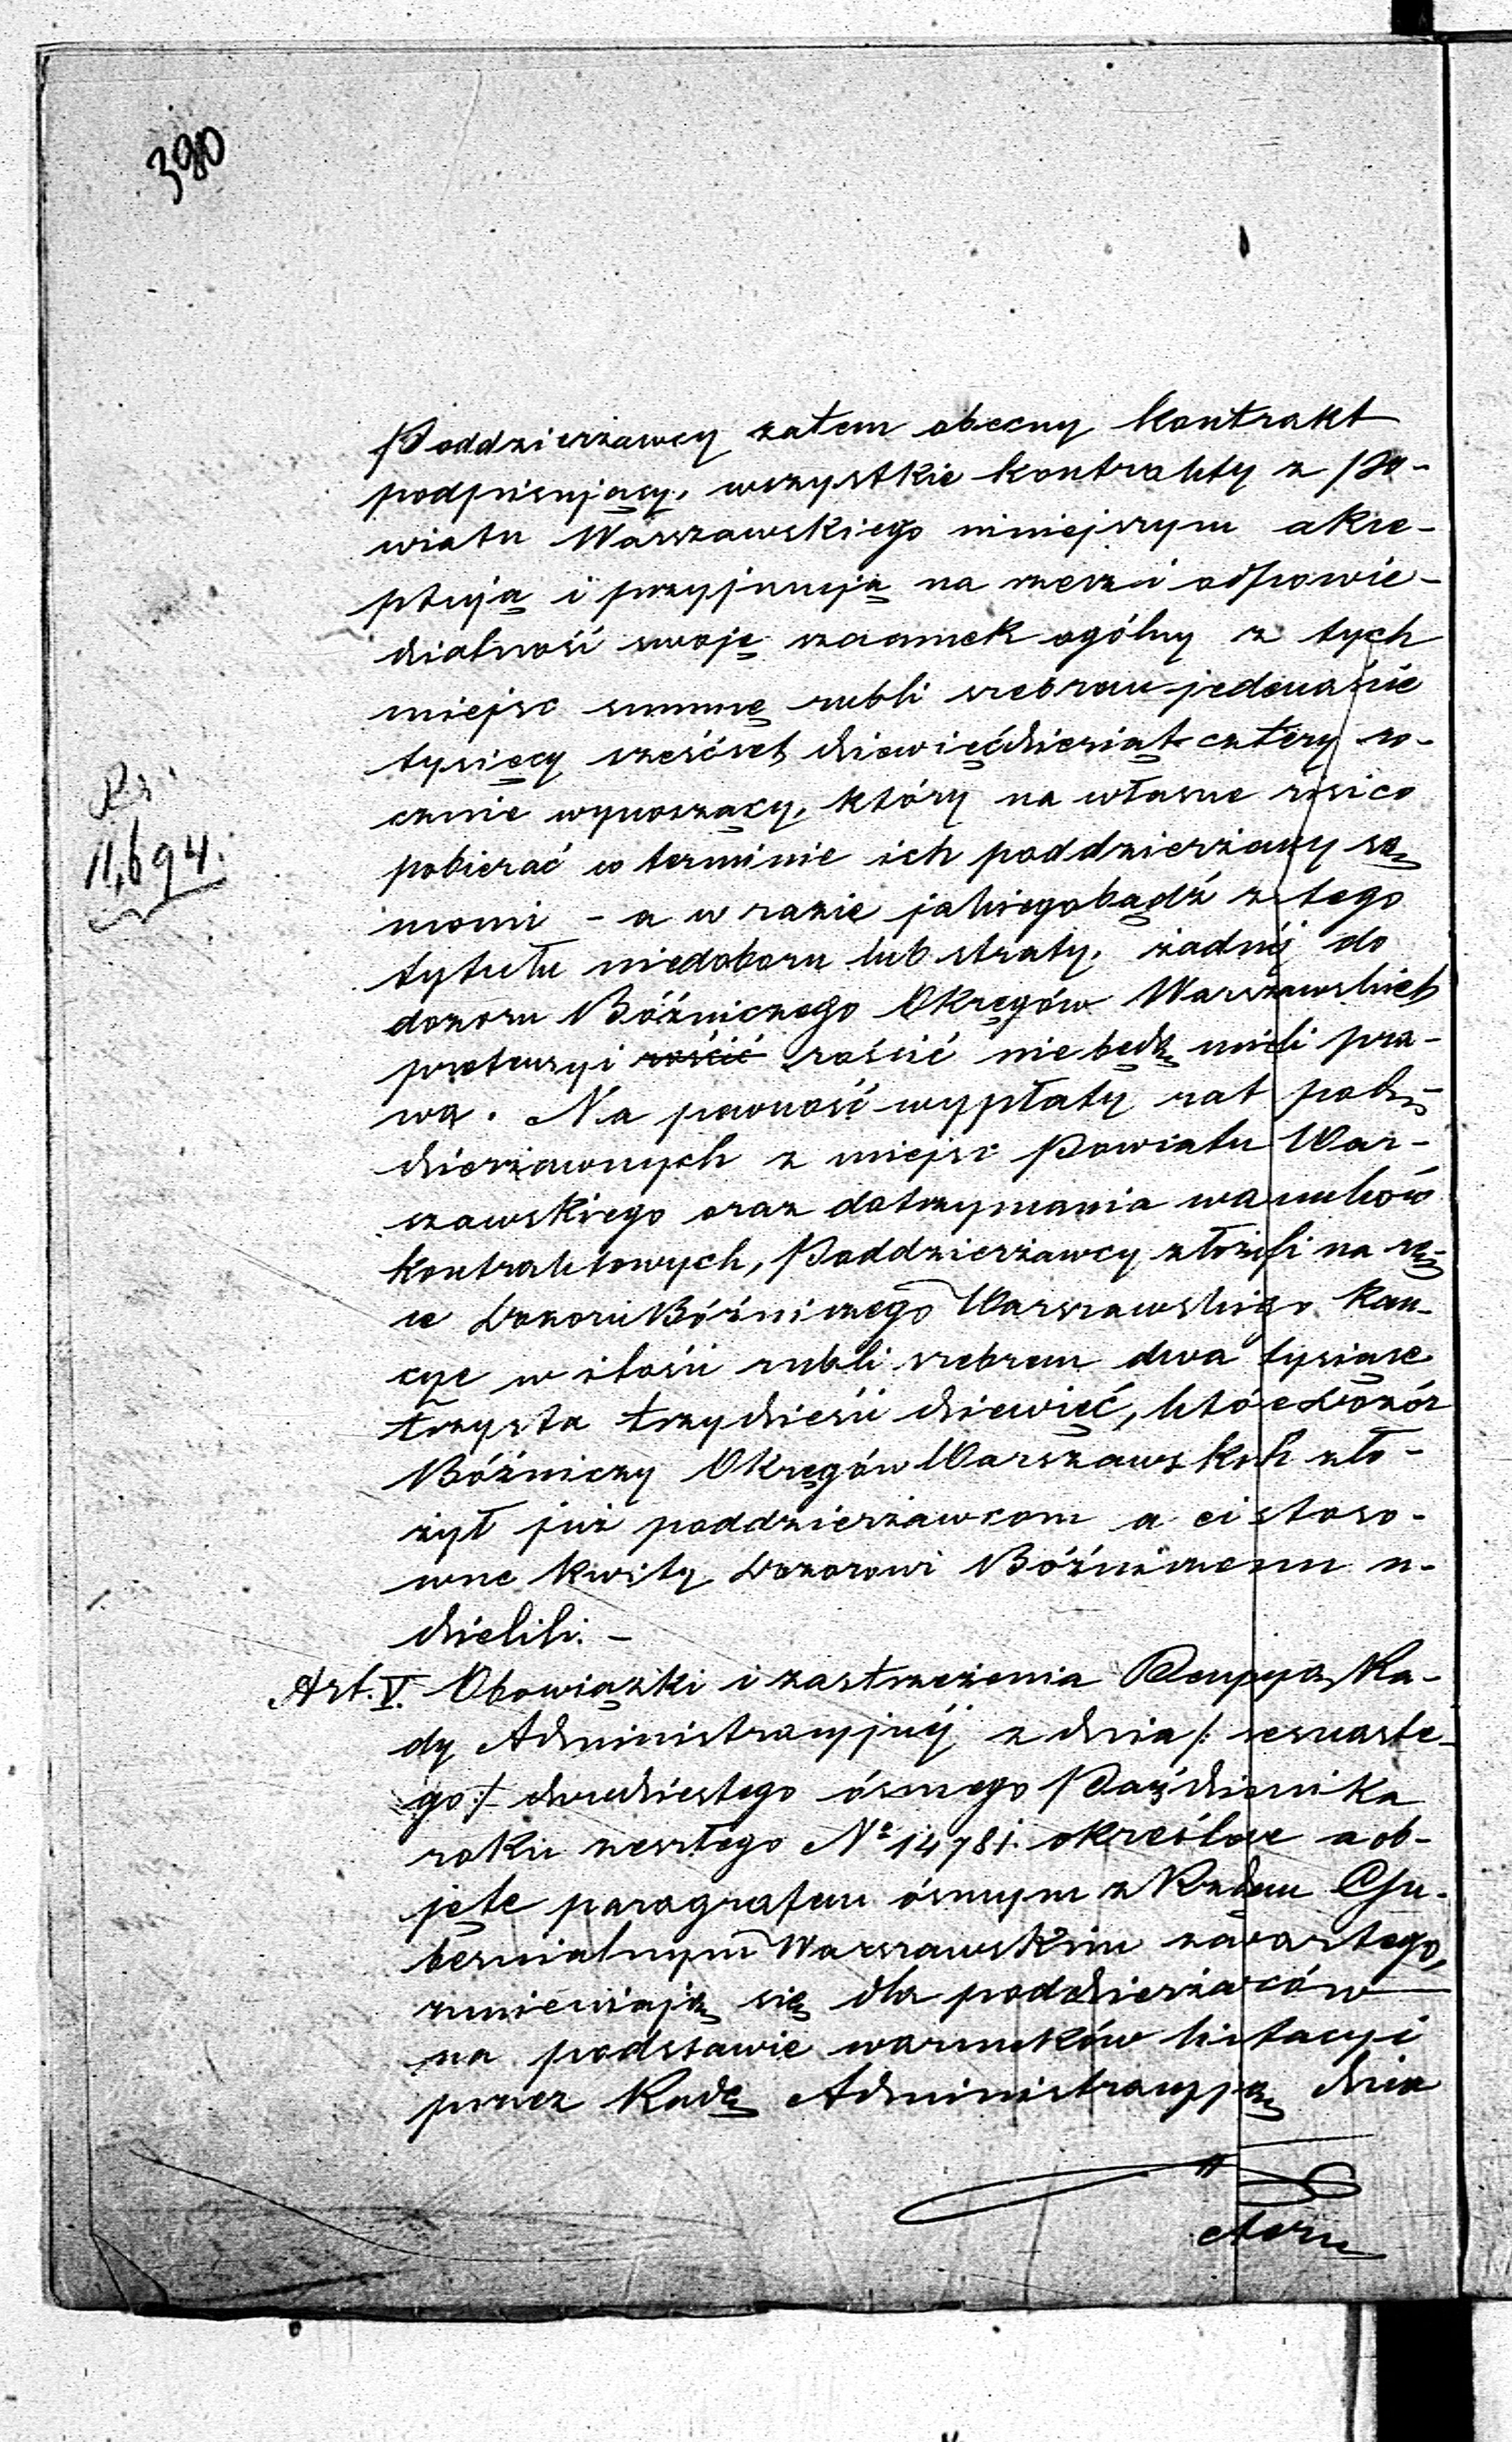 390
Poddzierżawcy zatem obecny kontrakt
podpisujący, wszystkie kontrakty z po-
wiatu Warszawskiego niniejszym akce-
ptują i przyjmują na rzecz i odpowie-
dzialność swoję szacunek ogólny z tych
miejsc summę rubli srebrem jedenaście
tysięcy sześćset dziewięćdziesiąt cztery ro-
cznie wynoszący, który na własne risico
pobierać w terminie ich poddzierżawy są
mocni - a w razie jakiegobądź z tego
tytułu niedoboru lub straty, żadnéj do
dozoru Bóźniczego Okręgów Warszawskich
pretensyi rościć rościć nie będą mieli pra-
wa. Na pewność wypłaty rat podz-
dzierżawnych z miejsc Powiatu War-
szawskiego oraz dotrzymania warunków
kontraktowych, Poddzierżawcy złożyli na rę-
ce Dozoru Bóźniczego Warszawskiego kau-
cyę w ilości rubli srebrem dwa tysiące
trzysta trzydzieści dziewięć, które Dozór
Bóźniczy Okręgów Warszawskich zło-
żył już poddzierżawcom a ci stoso-
wne kwity Dozorowi Bóźniczemu u-
dzielili. -
Rs.
11,694.
Art. V. Obowiązki i zastrzeżenia Decyzyą Ra-
dy Administracyjnéj z dnia /: szesnaste-
go :/ dwudziestego ósmego Października
roku zeszłego Nº 14781. określone a ob-
jęte paragrafem ósmym z Rządem Gu-
bernialnym Warszawskim zawartego,
zmieniają się dla poddzierżawców
na podstawie warunków licytacyi
przez Radę Administracyjną dnia